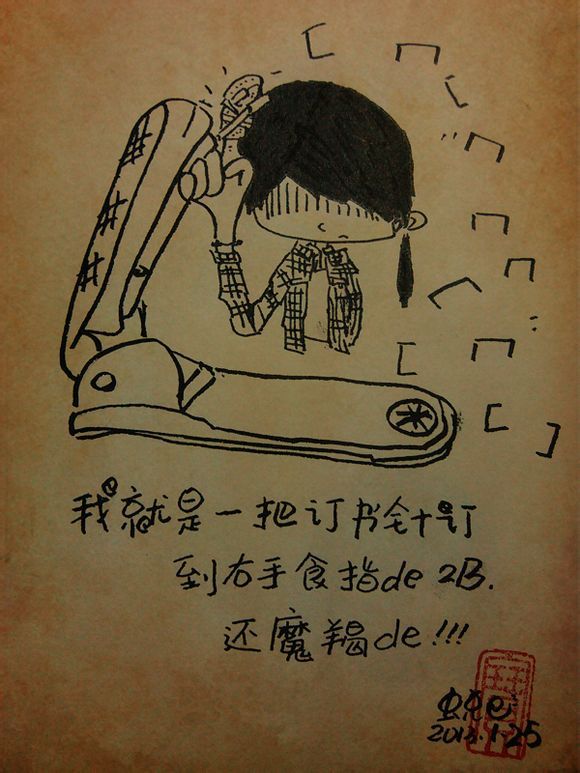 我就是一把订书针订
到右手食指de 2B.
还魔羯de!!!
2013.1.25